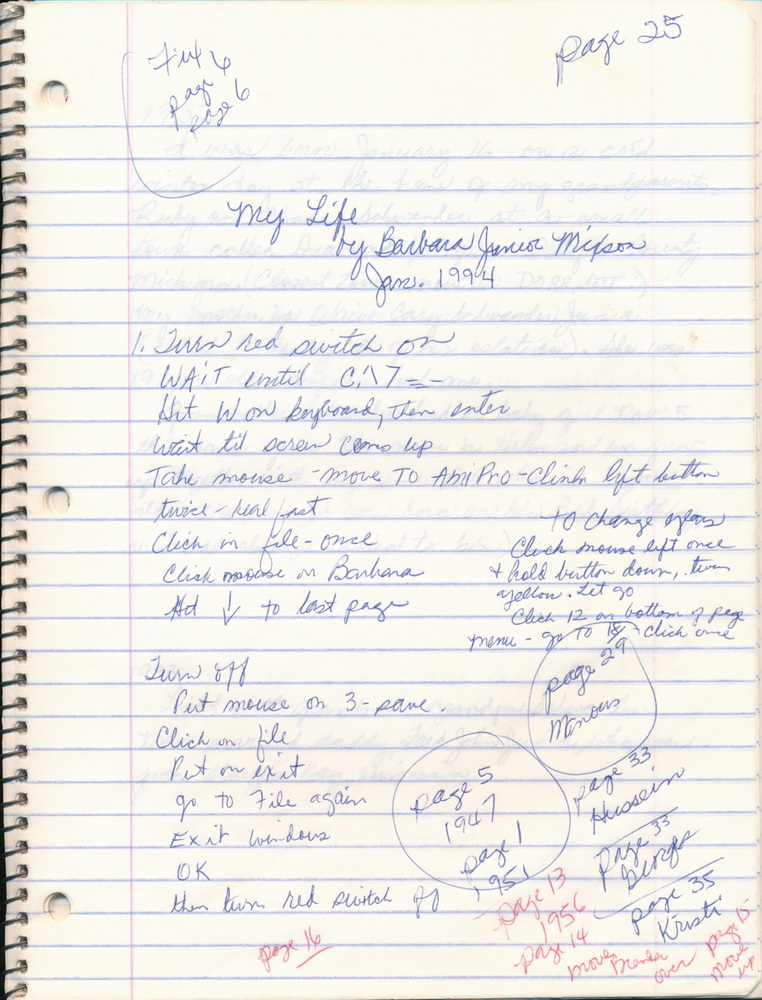 page 25
page
page 6
My Life
by Barbara Junior Mixson
Jan. 1994
1. Turn red switch on
WAIT until C:\7=-
Hit W on keyboard, then enter
Wait til screen coms up
Take mouse - move TO AmiPro - Clink left button
twice - real fast
Click in file - once
Click mouse on Barbara
Hit ↓ to last page
TO change
Click mouse left once
+ hold button down, turn
yellow. Let go
Click 12 on bottom of page
menu - go TO 18 - Click once
Turn off
Put mouse on 3 - save
Click on file
Put on exit
go to File again
Exit windows
OK
then turn red switch off
page 29
Manous
page 5
1947
page 1
1951
page 33
Hussein
page 33
George
page 35
Kristi
page 13
1956
page 14
move Brenda over
page 15
move up
page 16